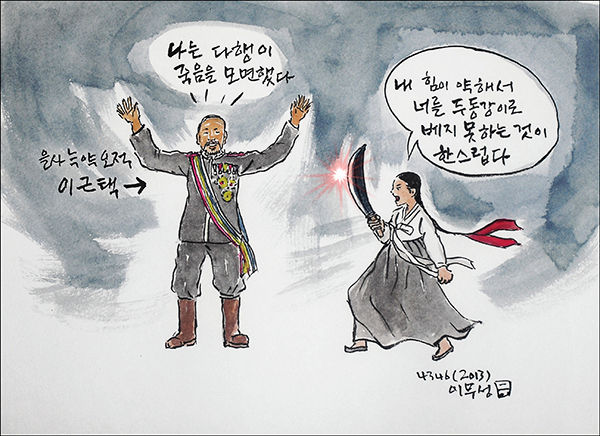 나는 다행이
죽음을 모면했다
내 힘이 약해서
너를 두동강이로
베지 못하는 것이
한스럽다
을사늑약오적
이근택→
4346(2013)
이무성